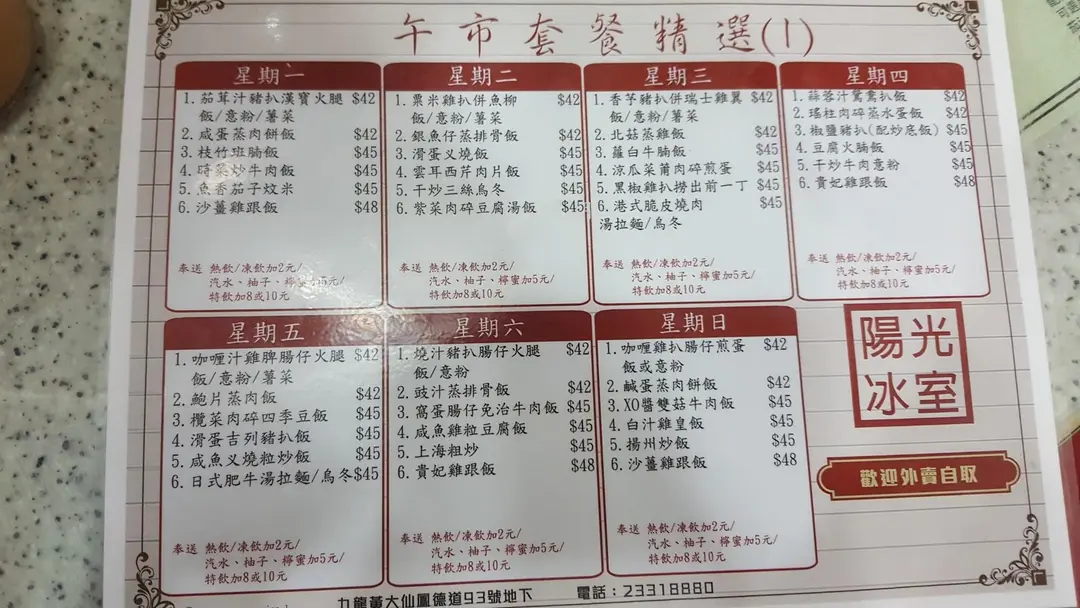 午市套餐精選(1)
星期一
1. 茄茸汁豬扒漢寶火腿 $42
飯/意粉/薯菜
2. 咸蛋蒸肉餅飯 $42
3. 枝竹班腩飯 $45
4. 時菜炒牛肉飯 $45
5. 魚香茄子炆米 $45
6. 沙薑雞跟飯 $48
奉送 熱飲/凍飲加2元/
汽水、柚子、檸蜜加5元/
特飲加8或10元
星期二
1. 粟米雞扒併魚柳 $42
飯/意粉/薯菜
2. 銀魚仔蒸排骨飯 $42
3. 滑蛋义燒飯 $45
4. 雲耳西芹肉片飯 $45
5. 干炒三絲烏冬 $45
6. 紫菜肉碎豆腐湯飯 $45
奉送 熱飲/凍飲加2元/
汽水、柚子、檸蜜加5元/
特飲加8或10元
星期三
1. 香芋豬扒併瑞士雞翼 $42
飯/意粉/薯菜
2. 北菇蒸雞飯 $42
3. 蘿白牛腩飯 $45
4. 涼瓜菜莆肉碎煎蛋 $45
5. 黑椒雞扒撈出前一丁 $45
6. 港式脆皮燒肉 $45
湯拉麵/烏冬
奉送 熱飲/凍飲加2元/
汽水、柚子、檸蜜加5元/
特飲加8或10元
星期四
1. 蒜蓉汁鴛鴦扒飯 $42
2. 瑤柱肉碎蒸水蛋飯 $42
3. 椒鹽豬扒(配炒底飯) $45
4. 豆腐火腩飯 $45
5. 干炒牛肉意粉 $45
6. 貴妃雞跟飯 $48
奉送 熱飲/凍飲加2元/
汽水、柚子、檸蜜加5元/
特飲加8或10元
星期五
1. 咖喱汁雞脾腸仔火腿 $42
飯/意粉/薯菜
2. 鮑片蒸肉飯 $42
3. 欖菜肉碎四季豆飯 $45
4. 滑蛋吉列豬扒飯 $45
5. 咸魚义燒粒炒飯 $45
6. 日式肥牛湯拉麵/烏冬 $45
奉送 熱飲/凍飲加2元/
汽水、柚子、檸蜜加5元/
特飲加8或10元
星期六
1. 燒汁豬扒腸仔火腿 $42
飯/意粉
2. 豉汁蒸排骨飯 $42
3. 窩蛋腸仔免治牛肉飯 $45
4. 咸魚雞粒豆腐飯 $45
5. 上海粗炒 $45
6. 貴妃雞跟飯 $48
奉送 熱飲/凍飲加2元/
汽水、柚子、檸蜜加5元/
特飲加8或10元
星期日
1. 咖喱雞扒腸仔煎蛋 $42
飯或意粉
2. 鹹蛋蒸肉餅飯 $42
3. XO醬雙菇牛肉飯 $45
4. 白汁雞皇飯 $45
5. 揚州炒飯 $45
6. 沙薑雞跟飯 $48
奉送 熱飲/凍飲加2元/
汽水、柚子、檸蜜加5元/
特飲加8或10元
陽光
冰室
歡迎外賣自取
九龍黃大仙鳳德道93號地下 電話:23318880